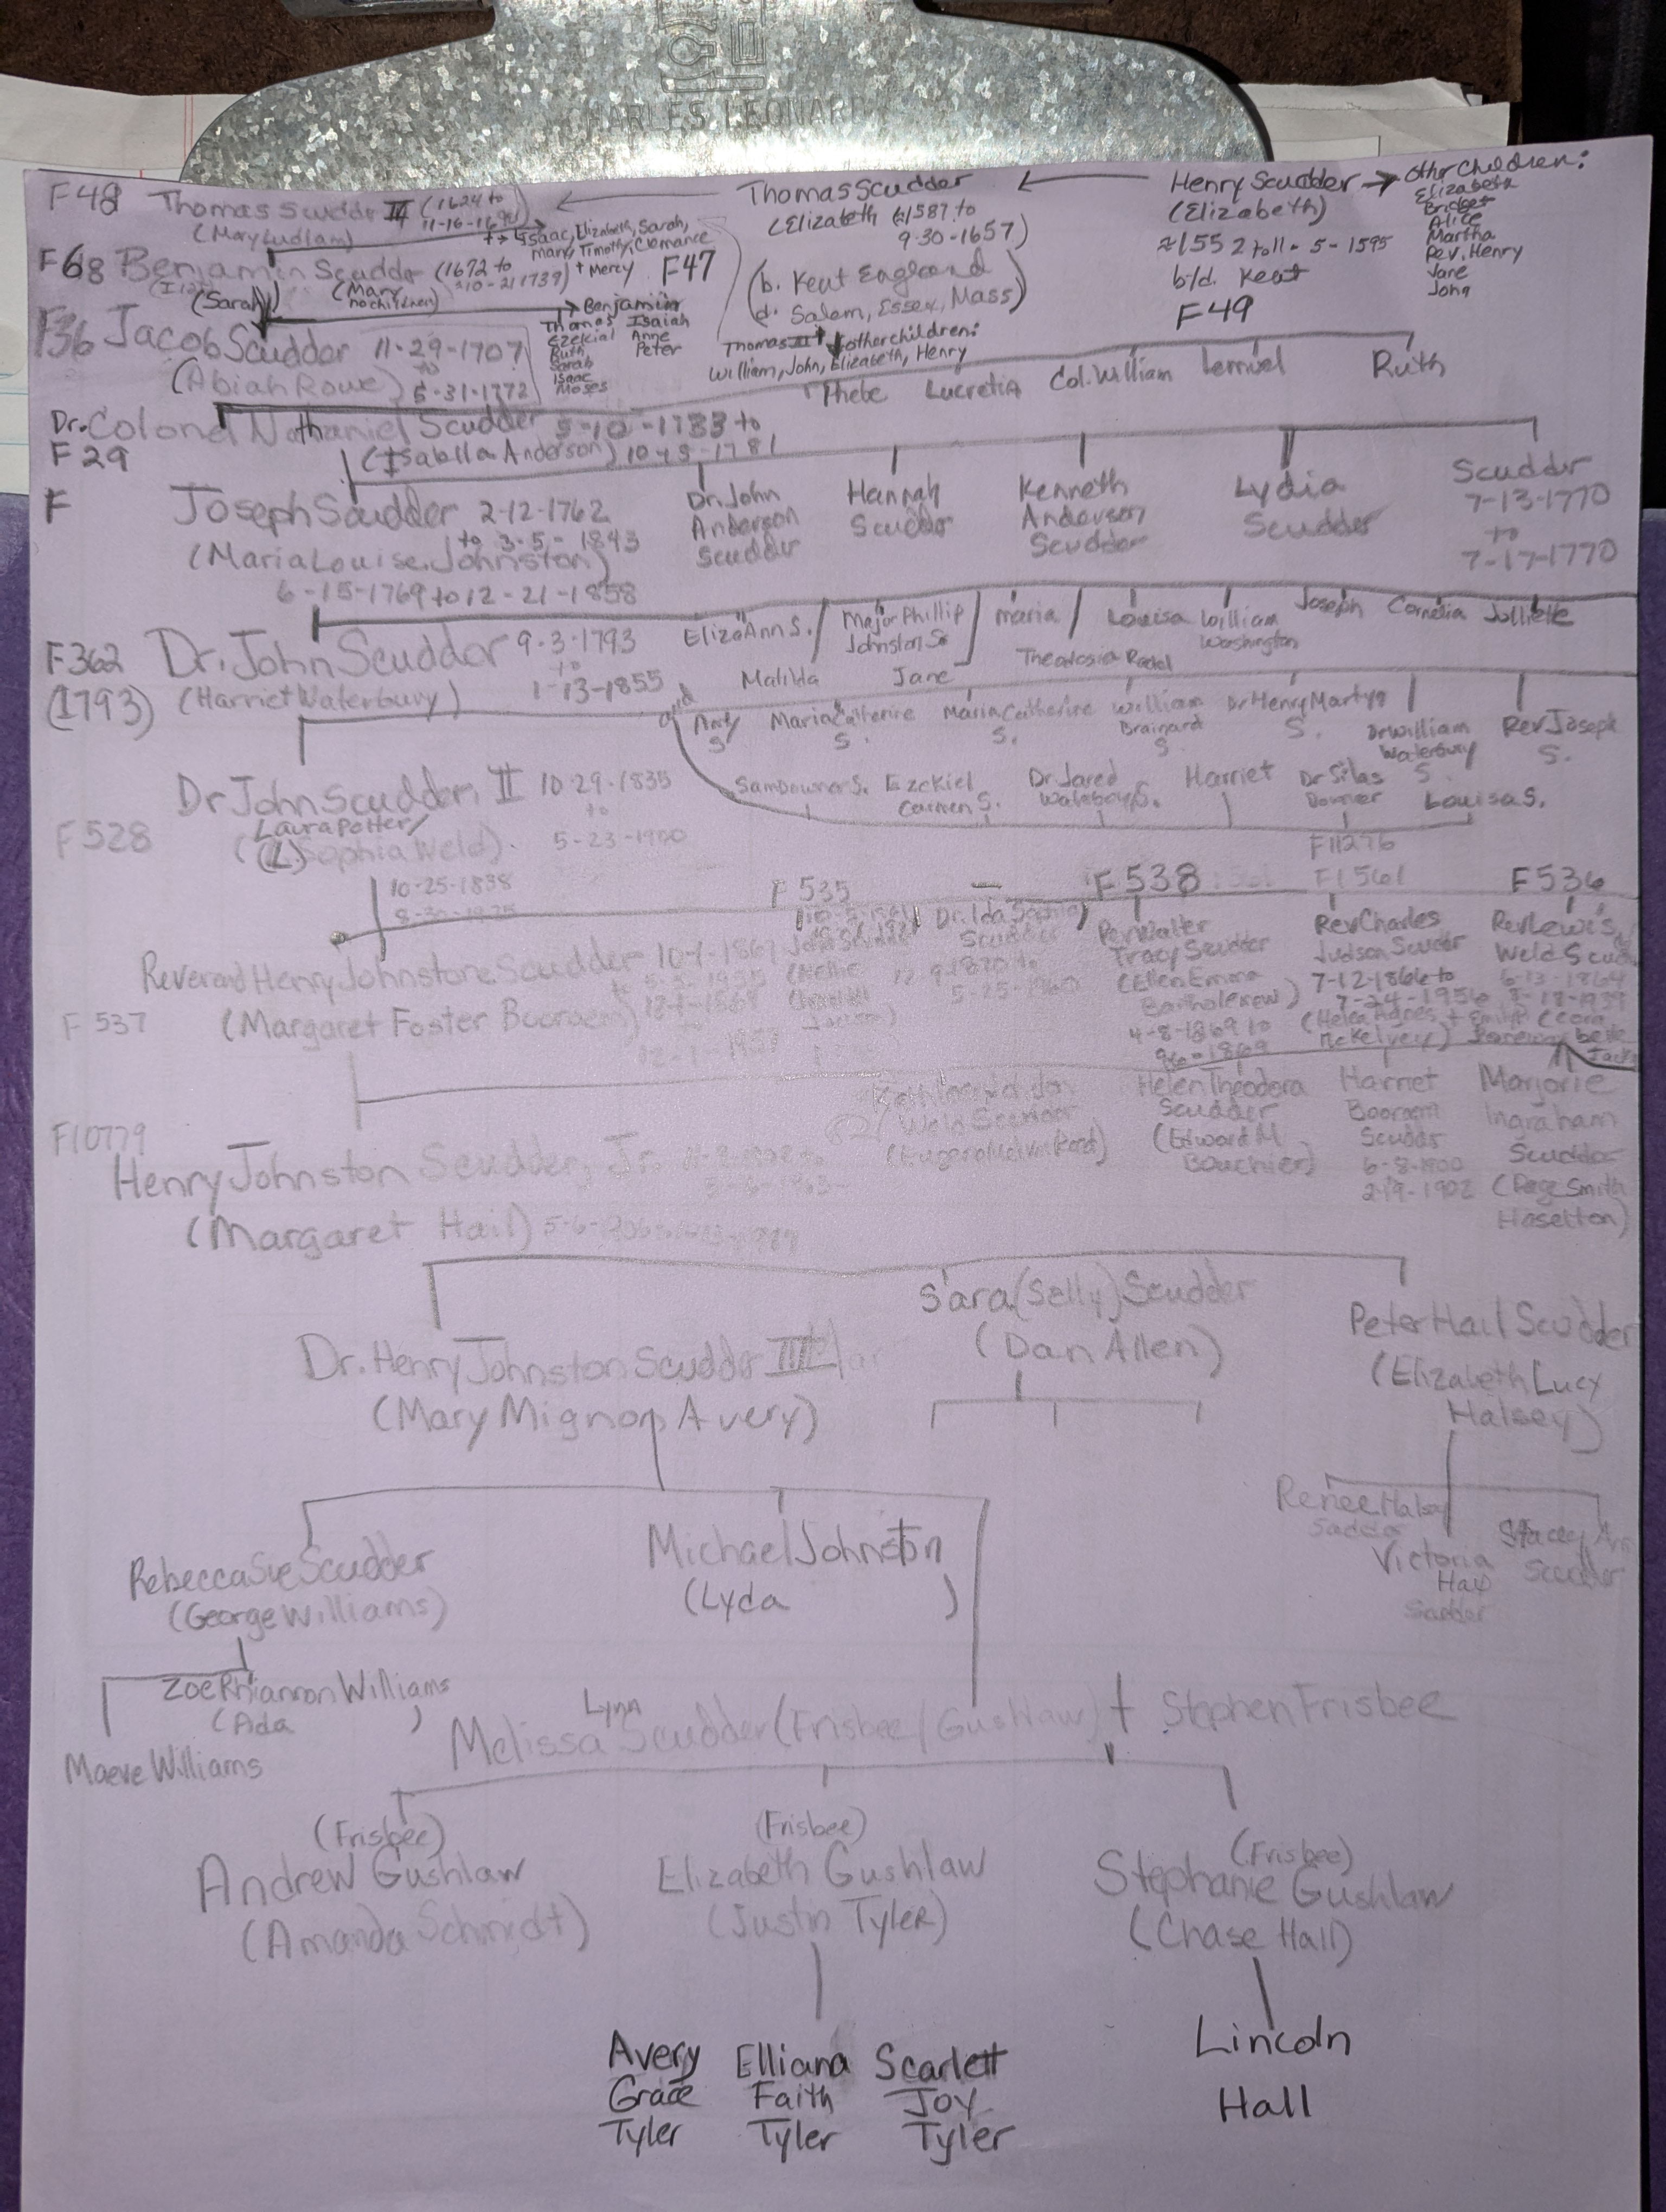 CHARLES LEONARD
F48 Thomas Scudder III (1624 to
(Mary Ludlam)
+ → Isaac, Elizabeth, Sarah,
Mary, Timothy, Clemance
+ Mercy F47
Thomas Scudder
(Elizabeth ≈1587 to
9-30-1657)
(b. Kent England
d. Salem, Essex, Mass)
Thomas II + other children:
William, John, Elizabeth, Henry
Henry Scudder → Other Children:
(Elizabeth)
≈1552 to 11-5-1595
b/d. Kent
F49
Elizabeth
Bridget
Alice
Martha
Rev. Henry
Jane
John
F68 Benjamin Scudder (1672 to
≈10-21739)
(Sarah) (Mary
no children)
→ Benjamin
Thomas Isaiah
Ezekial Anne
Ruth Peter
Sarah
Isaac
Moses
F36 Jacob Scudder 11-29-1707
to
(Abiah Rowe) 5-31-1772
Phebe Lucretia Col. William Lemuel Ruth
Dr. Colonel Nathaniel Scudder 5-10-1733 to
F29 (Isablla Anderson)
F Joseph Scudder 2-12-1762
to 3-5-1843
(Maria Louise Johnston)
6-15-1769 to 12-21-1858
Dr. John
Anderson
Scudder
Hannah
Scudder
Kenneth
Anderson
Scudder
Lydia
Scudder
Scuddr
7-13-1770
to
7-17-1770
F362 Dr. John Scudder 9-3-1793
to
(1793) (Harriet Waterbury) 1-13-1855
Eliza Ann S. / Major Phillip Johnston S. Maria / Louisa William Washington Joseph Cornelia Julliette
Matilda Jane Theadosia
and
Amy
S
Maria Catherine
S.
Maria Catherine
S.
William
Brainard
S
Dr Henry Martyn
S.
Dr William
Waterbury
S
Rev Joseph
S.
Sam Downer S. Ezekiel Carmen S. Dr. Jared Waterbury S. Harriet Dr Silas Downer Louisa S.
Dr John Scudder, II 10-29-1835
to
5-23-1900
Laura Potter/
F528 (L) Sophia Weld).
10-25-1838
F11276
F535 F538 F1561 F536
Reverand Henry Johnstone Scudder
F537 (Margaret Foster Booraem)
Dr. Ida Sophia
Scudder
Walter
Tracy Scudder
(Ellen Emma
Bartholemew)
4-8-1869 to
Rev Charles
Judson Scuddr
7-12-1866 to
7-24-1956
(Helen Agnes
McKelvey)
Rev Lewis
Weld Scudd
6-13-1864
Weld Scudder
Helen Theodora
Scudder
(Edward M
Bouchier)
Harriet
Booraem
Scuddr
6-8-1900
2-19-1902
Marjorie
Ingraham
Scuddr
(Page Smith
Haselton)
F10779
Henry Johnston Scudder, Jr.
(Margaret Hail)
Dr. Henry Johnston Scuddr III
(Mary Mignon Avery)
Sara (Sally) Scudder
(Dan Allen)
Peter Hail Scudder
(Elizabeth Lucy
Halsey)
Rebecca Sue Scudder
(George Williams)
Michael Johnston
(Lyda )
Renee Halsey
Victoria
Stacey Ann
Scudder
Zoe Rhiannon Williams
(Ada )
Maeve Williams
Lynn
Melissa Scudder (Frisbee/Gushlaw) + Stephen Frisbee
(Frisbee)
Andrew Gushlaw
(Amanda Schmidt)
(Frisbee)
Elizabeth Gushlaw
(Justin Tyler)
(Frisbee)
Stephanie Gushlaw
(Chase Hall)
Avery
Grace
Tyler
Elliana
Faith
Tyler
Scarlett
Joy
Tyler
Lincoln
Hall